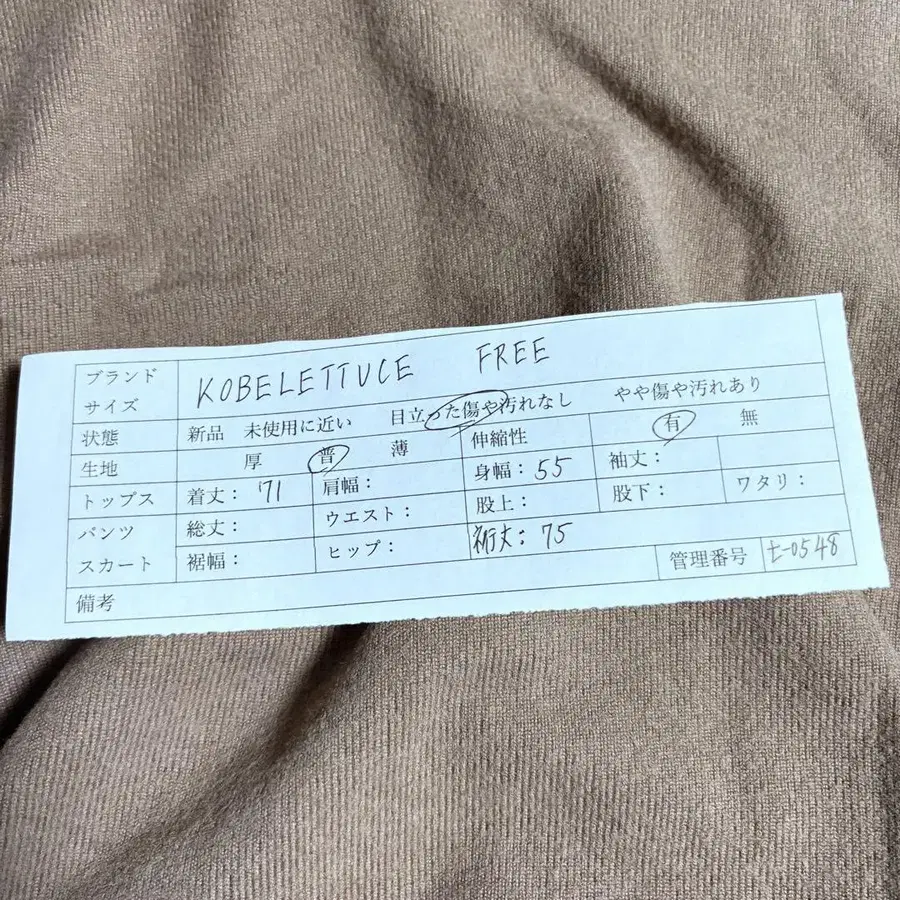 ブランド
サイズ
KOBELETTUCE FREE
状態 新品 未使用に近い 目立った傷や汚れなし やや傷や汚れあり
生地 厚 普 薄 伸縮性 有 無
トップス 着丈: 71 肩幅: 身幅: 55 袖丈:
パンツ 総丈: ウエスト: 股上: 股下: ワタリ:
スカート 裾幅: ヒップ: 裄丈: 75
管理番号 t-0548
備考